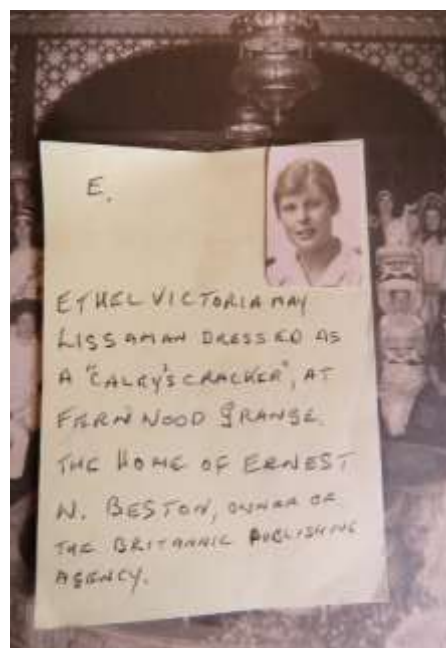 E.
ETHEL VICTORIA MAY
LISSAMAN DRESSED AS
A "CALEY'S CRACKER", AT
FERNWOOD GRANGE.
THE HOME OF ERNEST
W. BESTON, OWNER OF
THE BRITANNIC PUBLISHING
AGENCY.